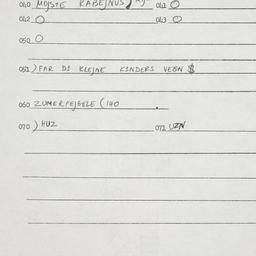 040 MOJSTE KABEJNUS 041 O
042 O 043 O
050 O
051) FAR DI KLEJNE KINDERS VEGN
060 ZUMERFEJGELE (140 .
070) HUZ 071 UZN